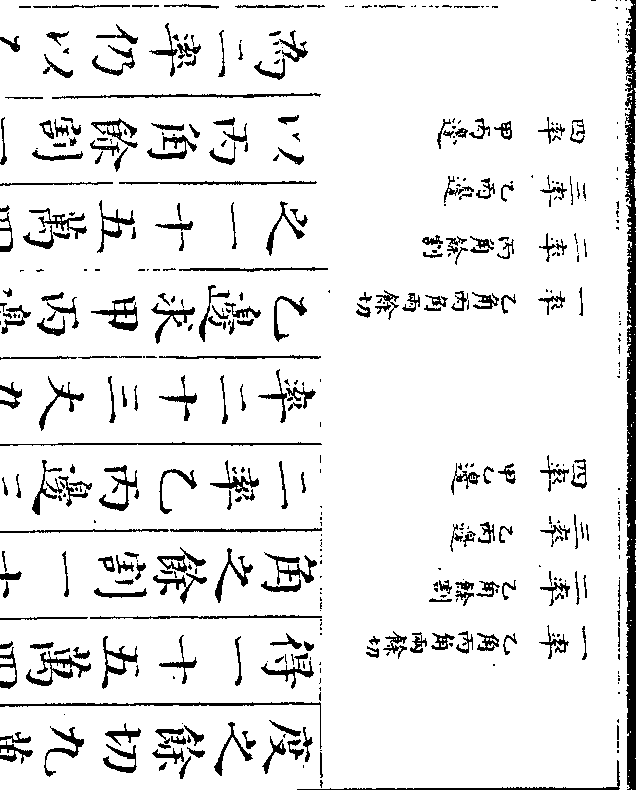 一率 乙角丙角兩餘切
二率 乙角餘割
三率 乙丙邊
四率 甲乙邊
一率 乙角丙角兩餘切
二率 丙角餘割
三率 乙丙邊
四率 甲丙邊
度之餘切九萬
得一十五萬四
角之餘割一十
二率乙丙邊三
率二十三丈九
乙邊求甲丙邊
之一十五萬四
以丙角餘割一
為二率仍以